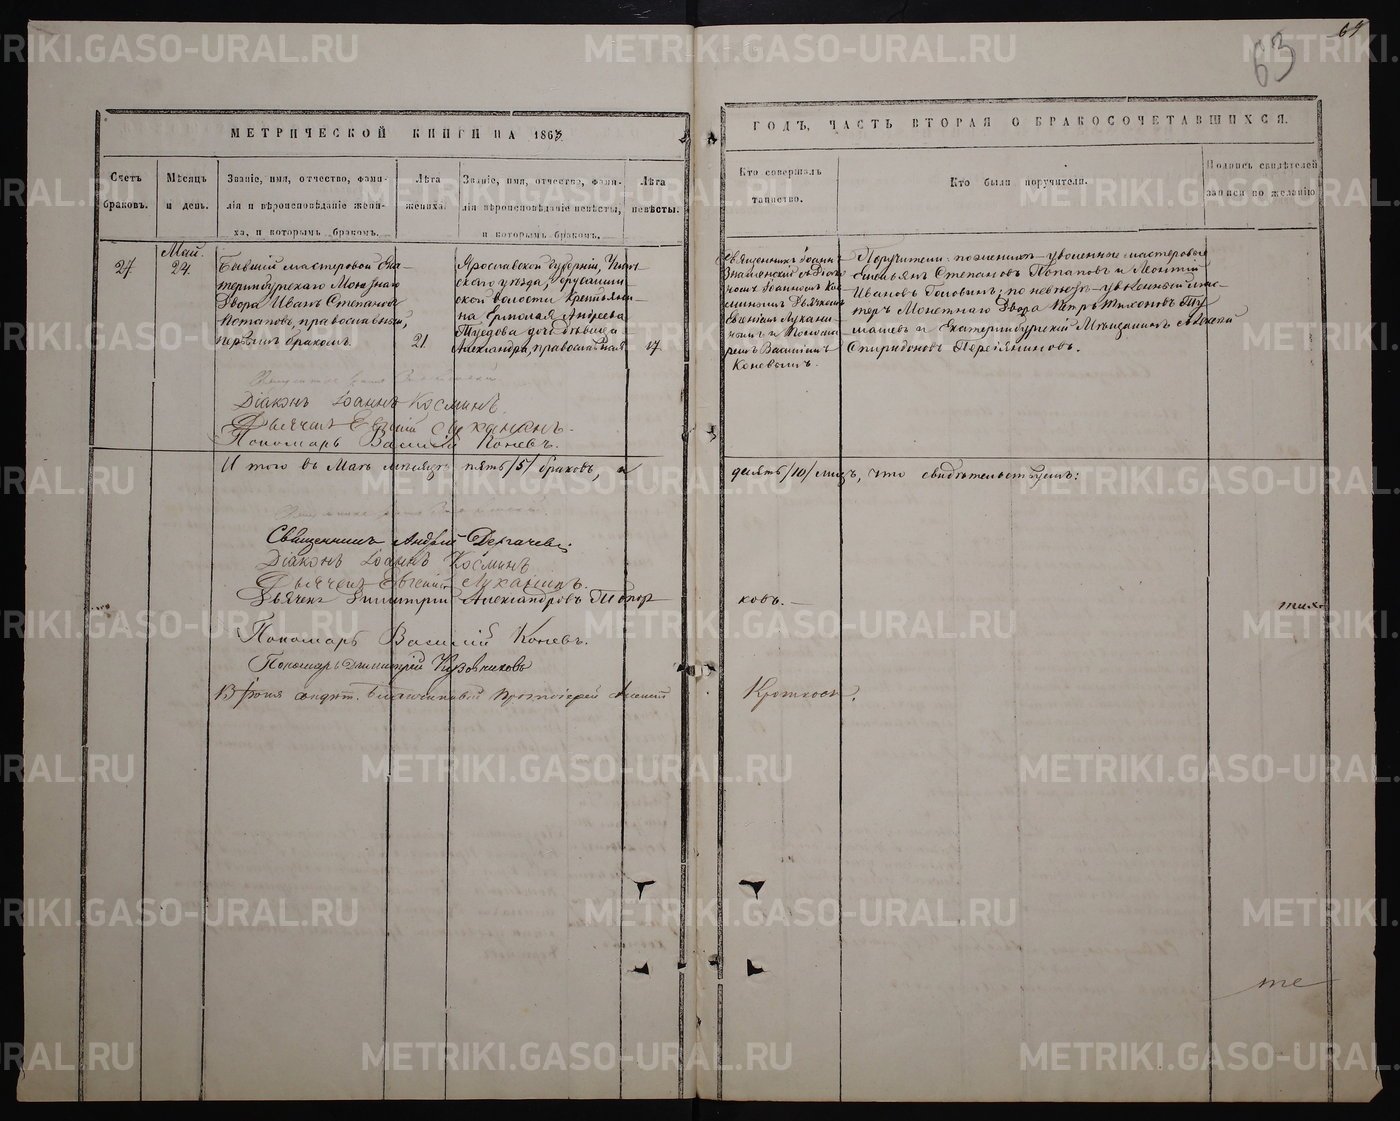 64
63
МЕТРИЧЕСКОЙ КНИГИ НА 1863
ГОДЪ, ЧАСТЬ ВТОРАЯ О БРАКОСОЧЕТАВШИХСЯ.
Счетъ браковъ.
Мѣсяцъ и день.
Званіе, имя, отчество, фами-
лія и вѣроисповѣданіе жени-
ха, и которымъ бракомъ.
Лѣта жениха.
Званіе, имя, отчество, фами-
лія и вѣроисповѣданіе невѣсты,
и которымъ бракомъ.
Лѣта невѣсты.
Кто совершалъ
таинство.
Кто были поручители.
Подпись свидѣтелей
записи по желанію
27
Май.
24.
Бывшій мастеровой Ека-
теринбургскаго Монетнаго
Двора Иванъ Степановъ
Потаповъ, православный,
первымъ бракомъ.
21.
Ярославской Губерніи,
скаго уѣзда,
ской волости крестьяни-
на Ермолая Андреева
дочь дѣвица
Александра, православная
17
Священникъ Іоаннъ
Знаменскій съ Діа-
кономъ Іоанномъ Кос-
минымъ Дьячкомъ
Евгеніемъ Лукани-
нымъ и Понома-
ремъ Василіемъ
Коневымъ.
Поручители: по женихѣ - уволенные мастеровые
Степановъ Потаповъ и Леонтій
Ивановъ Головинъ; по невѣстѣ - уволенный мас-
теръ Монетнаго Двора Петръ Тихоновъ
и Екатеринбургскій Мѣщанинъ
Спиридоновъ
Діаконъ Іоаннъ Косминъ.
Дьячекъ Евгеній Луканинъ.
Пономарь Василій Коневъ.
Итого въ Маѣ мѣсяцѣ пять /5/ браковъ, а
десять /10/ лицъ, что свидѣтельствуемъ:
Священникъ Андрей Дергачевъ
Діаконъ Іоаннъ Косминъ
Дьячекъ Евгеній Луканинъ.
Дьячекъ Димитрій Александровъ
ковъ.
Пономарь Василій Коневъ.
Пономарь Димитрій
Благочинный Протоіерей
те
METRIKI.GASO-URAL.RU